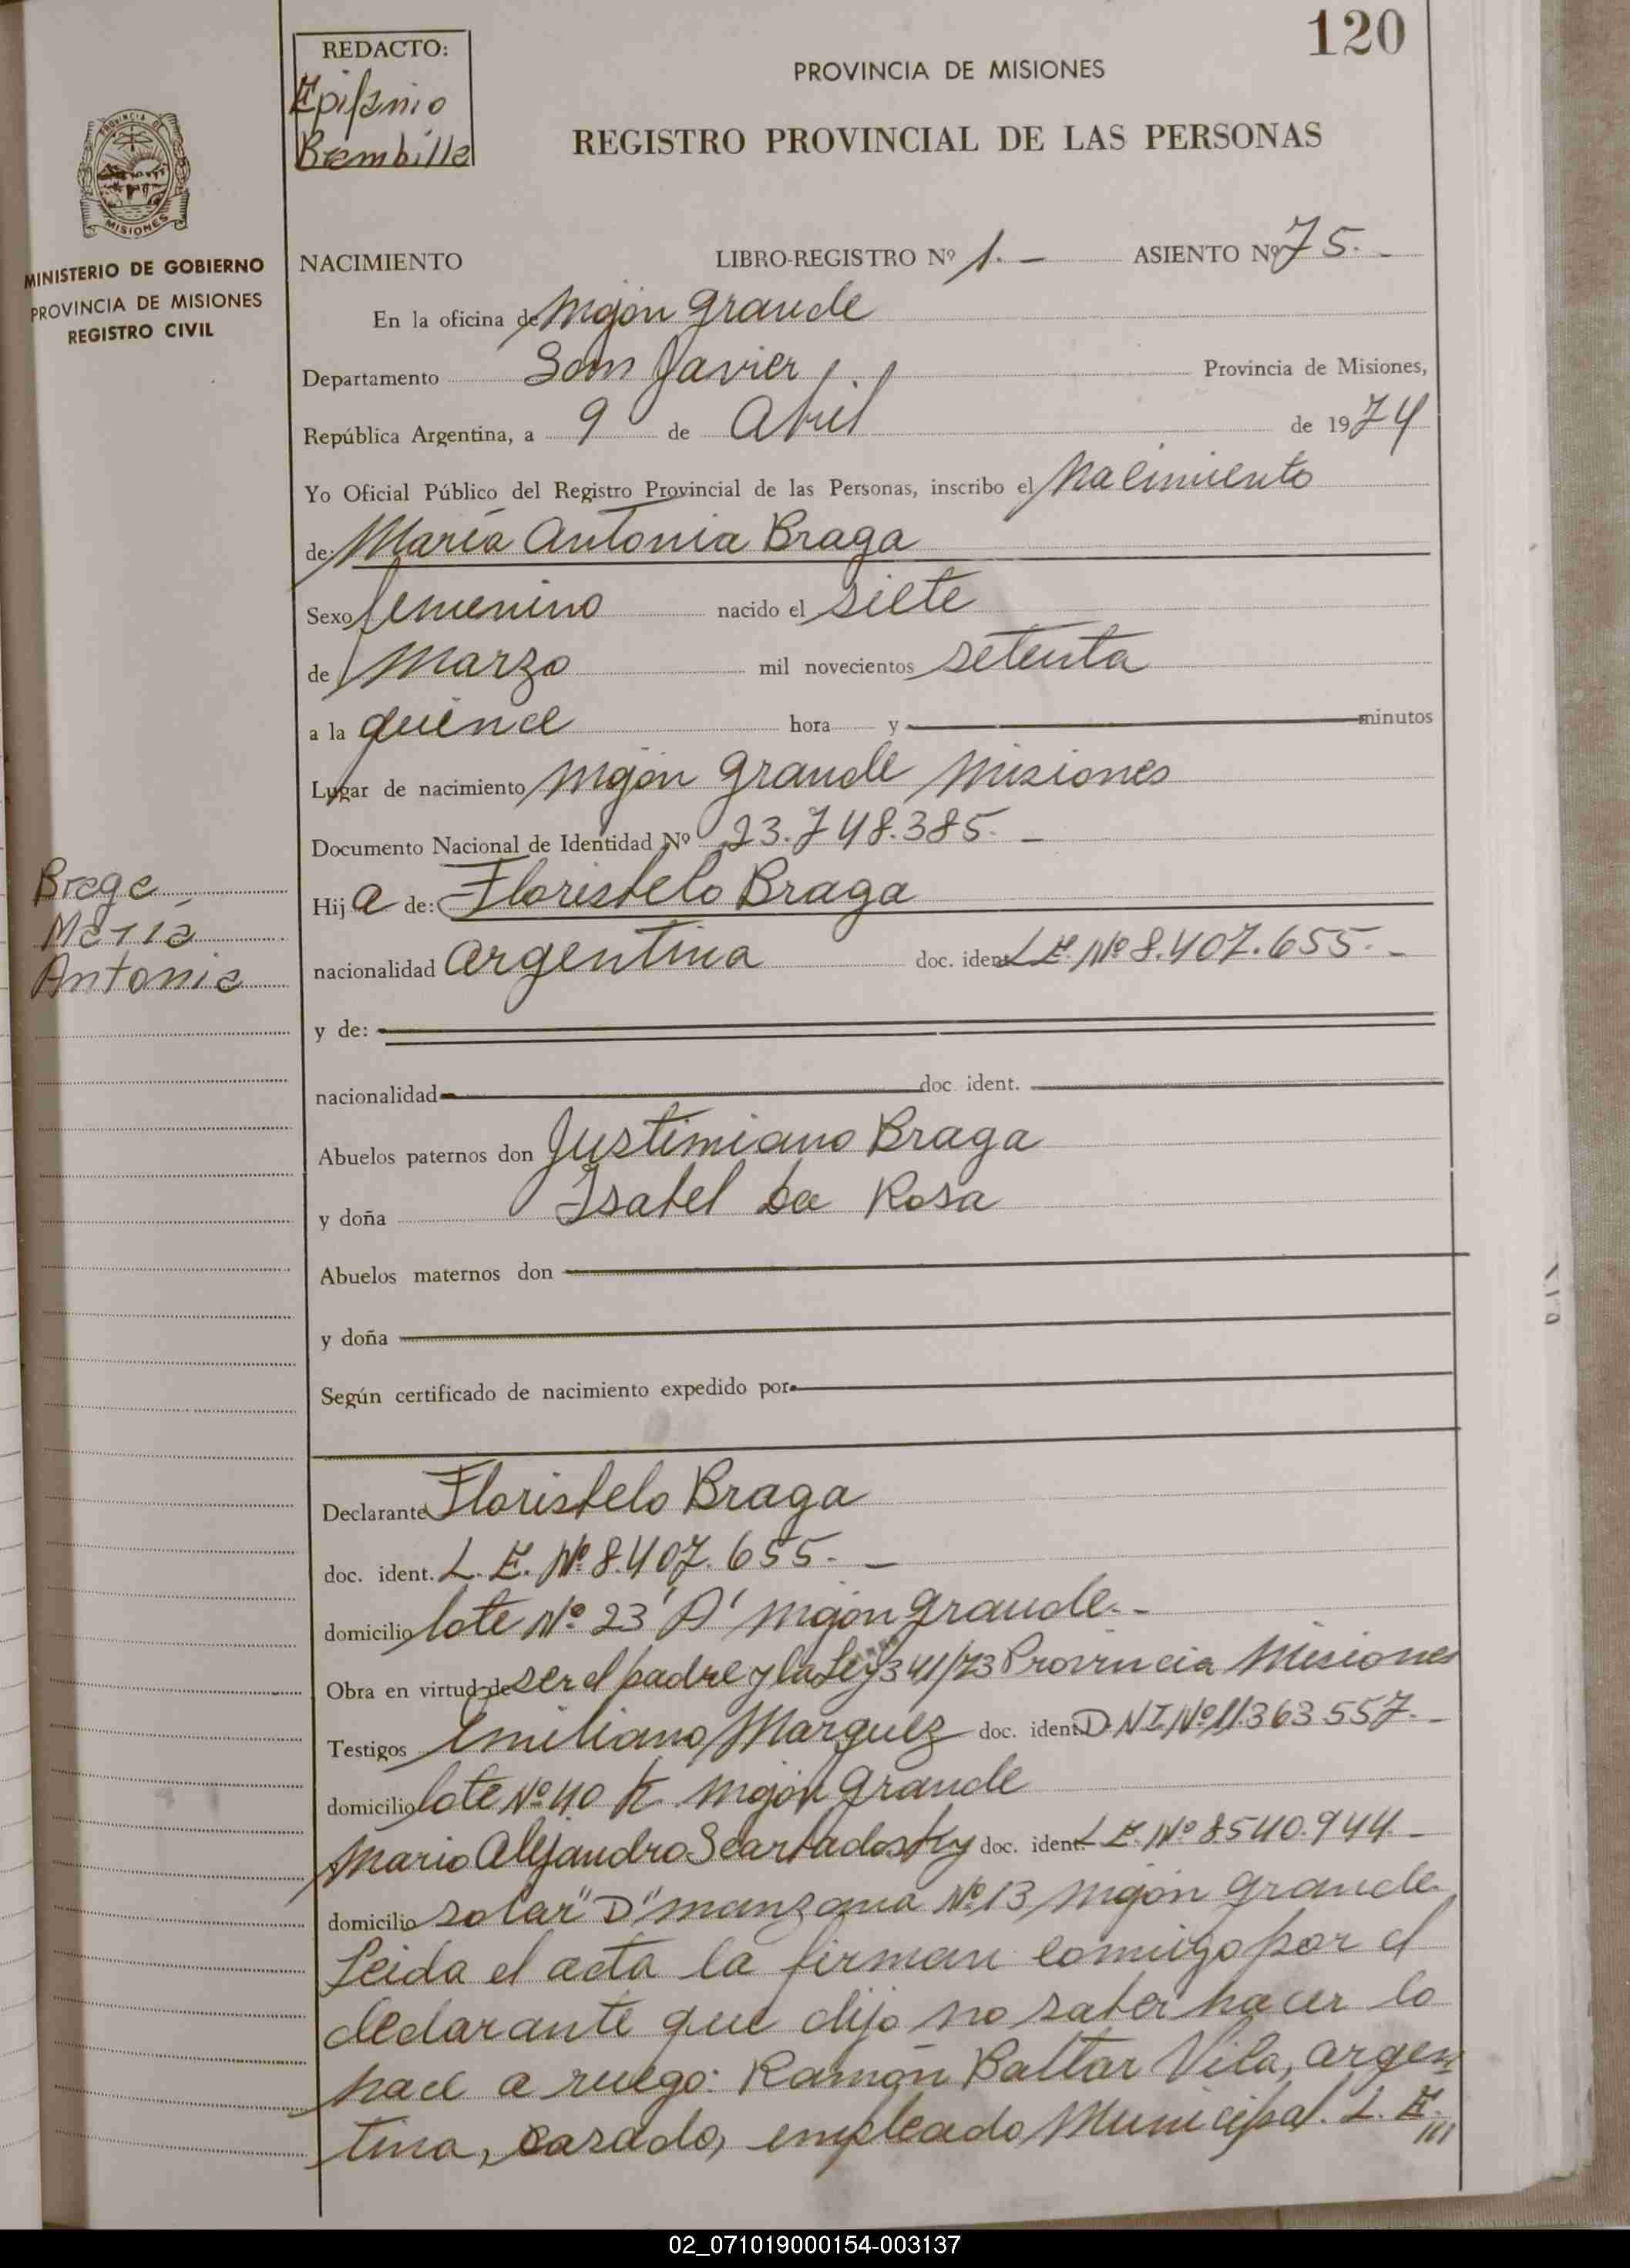 120
REDACTO:
Epifanio
Brambilla
PROVINCIA DE MISIONES
REGISTRO PROVINCIAL DE LAS PERSONAS
PROVINCIA DE
MISIONES
MINISTERIO DE GOBIERNO
PROVINCIA DE MISIONES
REGISTRO CIVIL
NACIMIENTO LIBRO-REGISTRO Nº 1.- ASIENTO Nº 75.-
En la oficina de Mojón Grande
Departamento San Javier Provincia de Misiones,
República Argentina, a 9 de Abril de 1974
Yo Oficial Público del Registro Provincial de las Personas, inscribo el Nacimiento
de: María Antonia Braga
Sexo femenino nacido el siete
de Marzo mil novecientos setenta
a la quince hora y minutos
Lugar de nacimiento Mojón Grande Misiones
Documento Nacional de Identidad Nº 23.748.385.-
Braga
María
Antonia
Hija de: Floristelo Braga
nacionalidad argentina doc. ident. L.E. Nº 8.407.655.-
y de:
nacionalidad doc. ident.
Abuelos paternos don Justimiano Braga
y doña Isabel Da Rosa
Abuelos maternos don
y doña
Según certificado de nacimiento expedido por
Declarante Floristelo Braga
doc. ident. L.E. Nº 8.407.655.-
domicilio lote Nº 23 'A' Mojón Grande.-
Obra en virtud de ser el padre y la Ley 341/73 Provincia Misiones
Testigos Emiliano Marquez doc. ident. D.N.I. Nº 11.363.557.-
domicilio lote Nº 40 K Mojón Grande
Mario Alejandro doc. ident. L.E. Nº 8540.944.-
domicilio solar "D" manzana Nº 13 Mojón Grande
Leida el acta la firman conmigo por el
declarante que dijo no saber hacer lo
hace a ruego: Ramón Baltar Vila, argen
tina, casado, empleado Municipal. L.E.
///
02_071019000154-003137